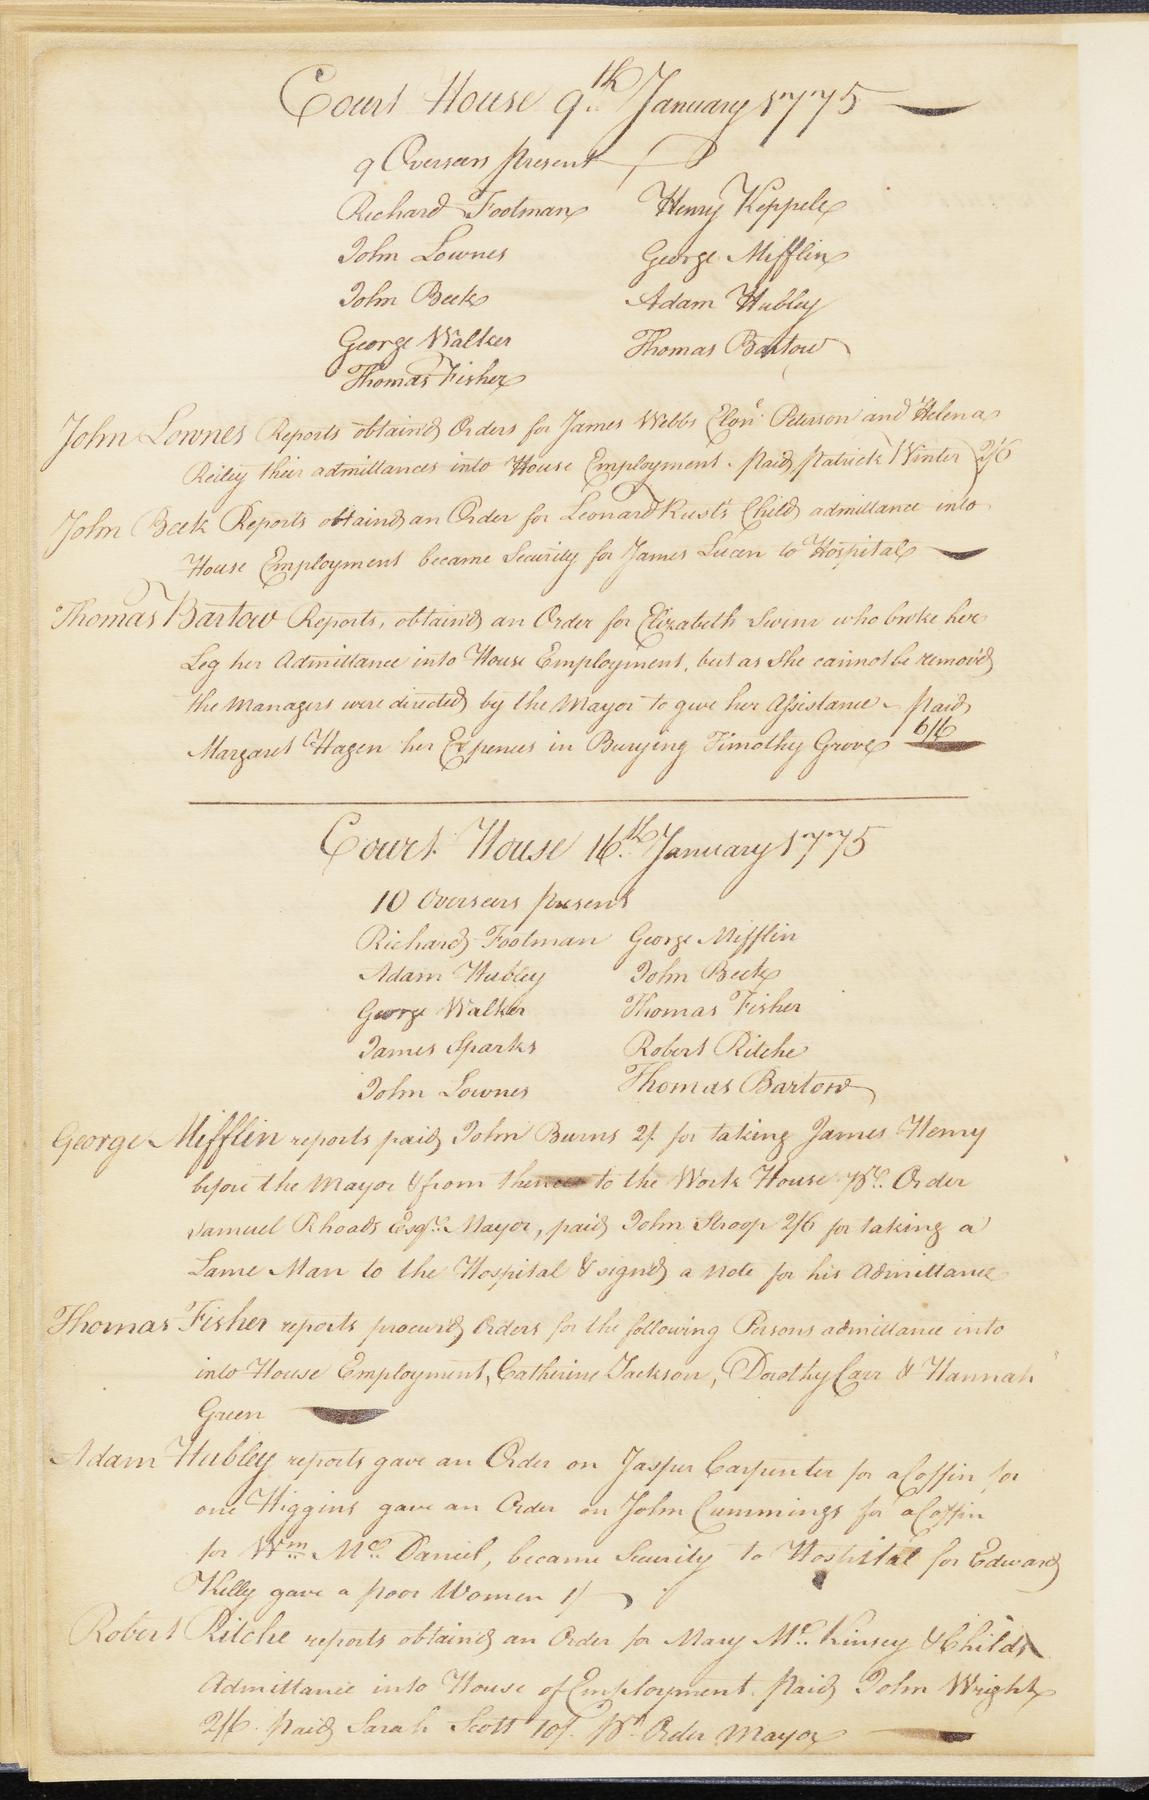 Court House 9th January 1775
9 Overseers present
Richard Footman Henry Keppele
John Lownes George Mifflin
John Beek Adam Hubley
George Walker Thomas Bartow
Thomas Fisher
John Lownes Reports obtain'd Orders for James Webbs Peterson and Helena
Reiley their admittances into House Employment. Paid Patrick Winter 2/6
John Beek Reports obtaind an Order for Leonard Rust's Child admittance into
House Employment became Security for James Lucen to Hospital
Thomas Bartow Reports, obtain'd an Order for Elizabeth who broke her
Leg her Admittance into House Employment, but as She cannot be remov'd
the Managers were directed by the Mayor to give her Assistance Paid
Margaret Hagen her Expences in Burying Timothy Grove 6/6
Court House 16th January 1775
10 Overseers present
Richard Footman George Mifflin
Adam Hubley John Beek
George Walker Thomas Fisher
James Sparks Robert Ritche
John Lownes Thomas Bartow
George Mifflin reports paid John Burns 2/ for taking James Henry
before the Mayor & from thence to the Work House Order
Samuel Rhoads Esqr. Mayor, paid John Stroop 2/6 for taking a
Lame Man to the Hospital & signd a Note for his Admittance
Thomas Fisher reports procurd Orders for the following Persons admittance into
into House Employment, Catherine Jackson, Dorothy Carr & Hannah
Green
Adam Hubley reports gave an Order on Jasper Carpenter for a Coffin for
one Higgins gave an Order on John Cummings for a Coffin
for Wm Mc Daniel, became Security to Hospital for Edward
Kelly gave a poor Women 1/
Robert Ritche reports obtaind an Order for Mary Mc. Kinsey & Childs
Admittance into House of Employment. Paid John Wright
2/6. Paid Sarah Scott 10/. Order Mayor